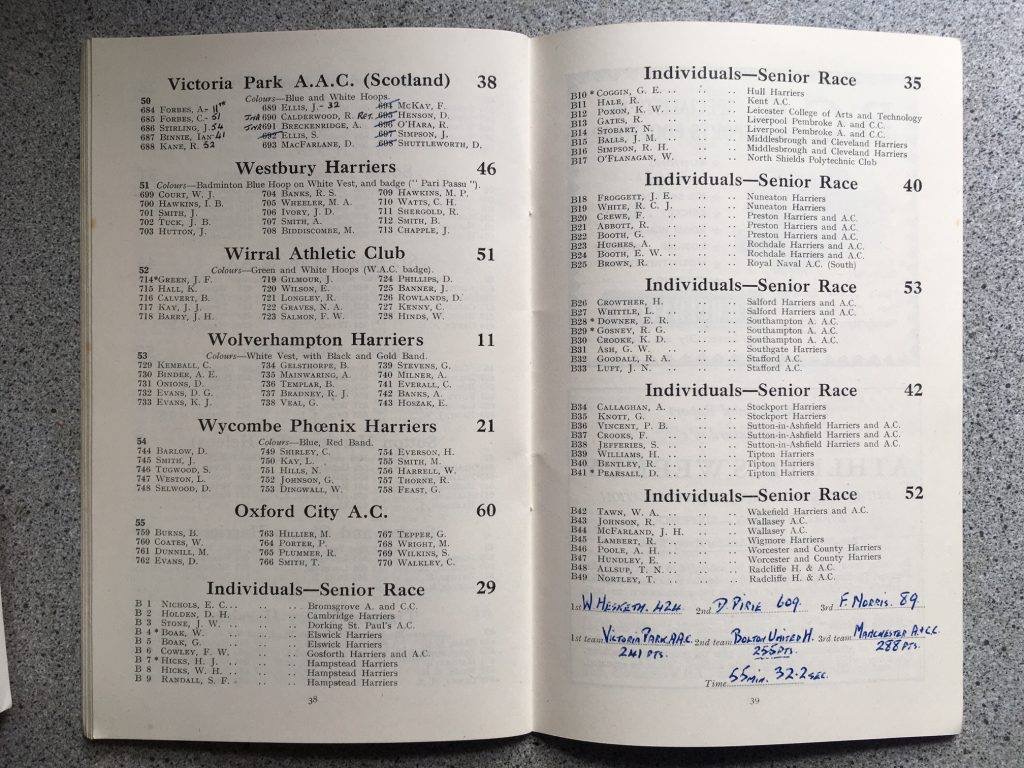 Victoria Park A.A.C. (Scotland) 38
50 Colours—Blue and White Hoops.
684 Forbes, A. - 11th 689 Ellis, J. - 32 694 McKay, F.
685 Forbes, C. - 51 690 Calderwood, R. Ret. 695 Henson, D.
686 Stirling, J. 54 691 Breckenridge, A. 696 O'Hara, R.
687 Binnie, Ian 41 692 Ellis, S. 697 Simpson, J.
688 Kane, R. 52 693 MacFarlane, D. 698 Shuttleworth, D.
Westbury Harriers 46
51 Colours—Badminton Blue Hoop on White Vest, and badge ("Pari Passu").
699 Court, W. J. 704 Banks, R. S. 709 Hawkins, M. P.
700 Hawkins, I. B. 705 Wheeler, M. A. 710 Watts, C. H.
701 Smith, J. 706 Ivory, J. D. 711 Shergold, R.
702 Tuck, J. B. 707 Smith, A. 712 Smith, B.
703 Hutton, J. 708 Biddiscombe, M. 713 Chapple, J.
Wirral Athletic Club 51
52 Colours—Green and White Hoops (W.A.C. badge).
714*Green, J. F. 719 Gilmour, J. 724 Phillips, D.
715 Hall, K. 720 Wilson, E. 725 Banner, J.
716 Calvert, B. 721 Longley, R. 726 Rowlands, D.
717 Kay, J. J. 722 Graves, N. A. 727 Kenny, C.
718 Barry, J. H. 723 Salmon, F. W. 728 Hinds, W.
Wolverhampton Harriers 11
53 Colours—White Vest, with Black and Gold Band.
729 Kemball, C. 734 Gelsthorpe, B. 739 Stevens, G.
730 Binder, A. E. 735 Mainwaring, A. 740 Milner, A.
731 Onions, D. 736 Templar, B. 741 Everall, C.
732 Evans, D. G. 737 Bradney, R. J. 742 Banks, A.
733 Evans, K. J. 738 Veal, G. 743 Hoszak, E.
Wycombe Phœnix Harriers 21
54 Colours—Blue, Red Band.
744 Barlow, D. 749 Shirley, C. 754 Everson, H.
745 Smith, J. 750 Kay, L. 755 Smith, M.
746 Tugwood, S. 751 Hills, N. 756 Harrell, W.
747 Weston, L. 752 Johnson, G. 757 Thorne, R.
748 Selwood, D. 753 Dingwall, W. 758 Feast, G.
Oxford City A.C. 60
55
759 Burns, B. 763 Hillier, M. 767 Tepper, G.
760 Coates, W. 764 Porter, P. 768 Wright, M.
761 Dunnill, M. 765 Plummer, R. 769 Wilkins, S.
762 Evans, D. 766 Smith, T. 770 Walkley, C.
Individuals—Senior Race 29
B 1 Nichols, E. C. .. .. .. Bromsgrove A. and C.C.
B 2 Holden, D. H. .. .. Cambridge Harriers
B 3 Stone, J. W. .. .. .. Dorking St. Paul's A.C.
B 4 * Boak, W. .. .. .. Elswick Harriers
B 5 Boak, G. .. .. .. Elswick Harriers
B 6 Cowley, F. W. .. .. Gosforth Harriers and A.C.
B 7 * Hicks, H. J. .. .. .. Hampstead Harriers
B 8 Hicks, W. H. .. .. .. Hampstead Harriers
B 9 Randall, S. F. .. .. .. Hampstead Harriers
38
Individuals—Senior Race 35
B10 * Coggin, G. E. .. .. Hull Harriers
B11 Hale, R. .. .. Kent A.C.
B12 Poxon, K. W. .. .. Leicester College of Arts and Technology
B13 Gates, R. .. .. Liverpool Pembroke A. and C.C.
B14 Stobart, N. .. .. Liverpool Pembroke A. and C.C.
B15 Balls, J. M. .. .. Middlesbrough and Cleveland Harriers
B16 Simpson, R. H. .. .. Middlesbrough and Cleveland Harriers
B17 O'Flanagan, W. .. .. North Shields Polytechnic Club
Individuals—Senior Race 40
B18 Froggett, J. E. .. .. Nuneaton Harriers
B19 White, R. C. J. .. .. Nuneaton Harriers
B20 Crewe, F. .. .. Preston Harriers and A.C.
B21 Abbott, R. .. .. Preston Harriers and A.C.
B22 Booth, G. .. .. Preston Harriers and A.C.
B23 Hughes, A. .. .. Rochdale Harriers and A.C.
B24 Booth, E. W. .. .. Rochdale Harriers and A.C.
B25 Brown, R. .. .. Royal Naval A.C. (South)
Individuals—Senior Race 53
B26 Crowther, H. .. .. Salford Harriers and A.C.
B27 Whittle, L. .. .. Salford Harriers and A.C.
B28 * Downer, E. R. .. .. Southampton A. A.C.
B29 * Gosney, R. G. .. .. Southampton A. A.C.
B30 Crooke, K. D. .. .. Southampton A. A.C.
B31 Ash, G. W. .. .. Southgate Harriers
B32 Goodall, R. A. .. .. Stafford A.C.
B33 Luft, J. N. .. .. Stafford A.C.
Individuals—Senior Race 42
B34 Callaghan, A. .. .. Stockport Harriers
B35 Knott, G. .. .. Stockport Harriers
B36 Vincent, P. B. .. .. Sutton-in-Ashfield Harriers and A.C.
B37 Crooks, F. .. .. Sutton-in-Ashfield Harriers and A.C.
B38 Jefferies, S. .. .. Sutton-in-Ashfield Harriers and A.C.
B39 Williams, H. .. .. Tipton Harriers
B40 Bentley, R. .. .. Tipton Harriers
B41 * Pearsall, D. .. .. Tipton Harriers
Individuals—Senior Race 52
B42 Tawn, W. A. .. .. Wakefield Harriers and A.C.
B43 Johnson, R. .. .. Wallasey A.C.
B44 McFarland, J. H. .. .. Wallasey A.C.
B45 Lambert, R. .. .. Wigmore Harriers
B46 Poole, A. H. .. .. Worcester and County Harriers
B47 Hundley, E. .. .. Worcester and County Harriers
B48 Allsup, T. N. .. .. Radcliffe H. & A.C.
B49 Nortley, T. .. .. Radcliffe H. & A.C.
1st W Hesketh. 424 2nd D. Pirie 609. 3rd F. Norris. 89
1st team Victoria Park A.A.C. 2nd team Bolton United H. 3rd team Manchester A & C.C.
241 pts. 255 pts. 288 pts.
Time 55 min. 32.2 sec.
39